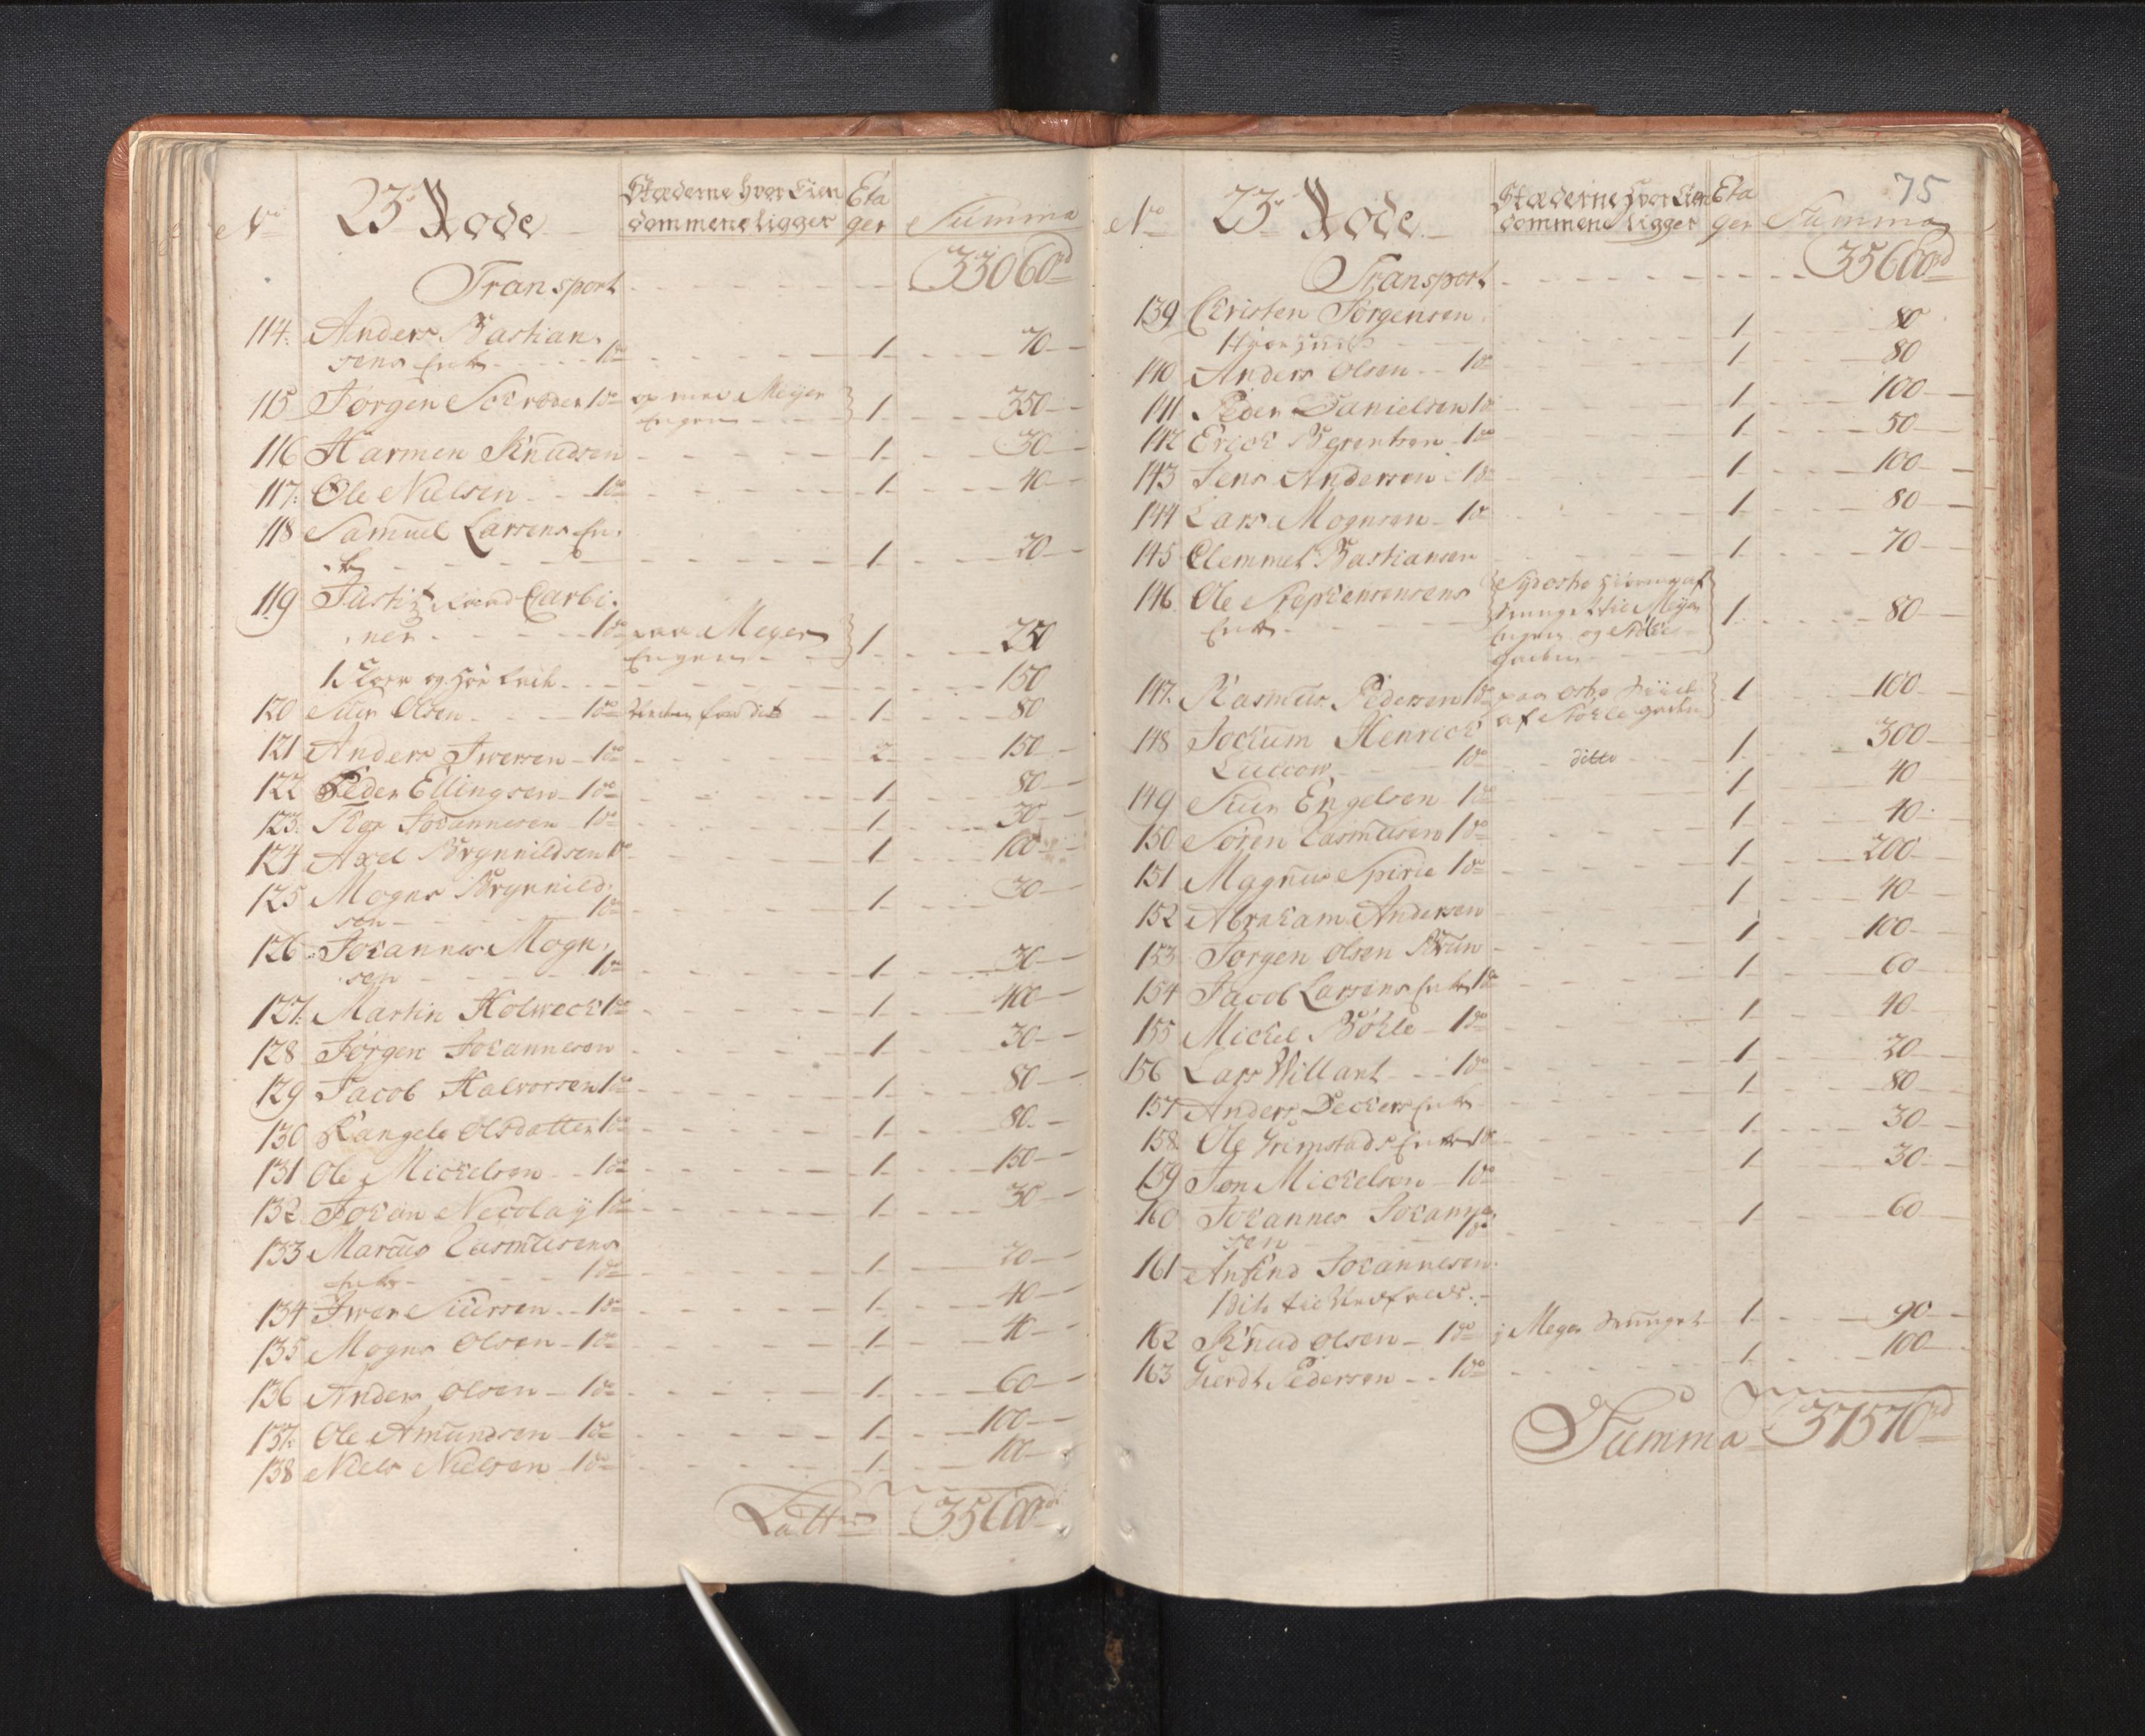 No 23de Rode Stæderne hvor Eien Eta
dommene ligger ger Summa
Transport 33060rd
114. Anders Bastian
sens Enke 1do 1 70
115 Jørgen Schrøder 1do Meyer
Engen 1 350
116 Harmen Knudsen 1 30
117. Ole Nielsen 1do 1 40
118 Samuel Larsens En
ke 1 20
119 Justitz Raad Carbi
ner 1do paa Meyer
Engen 1 250
150
120 Siur Olsen 1do 1 80
121 Anders Iwersen 1do 2 150
122 Peder Ellingsen 1do 1 80
123. Johannesen 1do 1 30
124 Axel Brynnildsen 1do 1 100
125 Mogns Brynnild
sen 1do 1 30
126 Johannes Mogn
sen 1do 1 30
127. Martin Holweck 1do 1 400
128 Jørgen Johannesen 1 30
129 Jacob Halvorsen 1do 1 80
130 Rangele Olsdatter 1do 1 80
131 Ole Mickelsen 1do 1 150
132 Johan Nicolay 1do 1 30
133 Marcus Rasmusens
Enke 1do 1 20
134 Iwer Siursen 1do 1 40
135 Mogns Olsen 1do 1 40
136 Anders Olsen 1do 1 60
137. Ole Amundsen 1do 1 100
138 Niels Nielsen 1do 1 100
Latter 35600rd
75
No 23de Rode Stæderne hvor Eien Eta
dommene ligger ger Summa
Transport 35600rd
139 Christen Jørgensen
1 1 80
140 Anders Olsen 1do 1 80
141 Peder Danielsen 1do 1 100
142 Erick Berentsen 1do 1 50
143 Jens Andersen 1do 1 100
144 Lars Mognsen 1do 1 80
145 Clemmet Bastiansen 1 70
146 Ole Stephensensens
Enke Meyer
Engen og Stølle
gaden 1 80
147. Rasmus Pedersen 1do paa
af Stølle gaden 1 100
148 Jochum Henrich
Lutcow 1do ditto 1 300
149 Siur Engelsen 1do 1 40
150 Søren Rasmusen 1do 1 40
151 Magnus Spirie 1do 1 200
152 Abraham Andersen 1 40
153 Jørgen Olsen Bruun 1 100
154 Jacob Larsens Enke 1do 1 60
155 Mickel Bøhle 1do 1 40
156 Lars Willant 1do 1 20
157 Anders Deckers Enke 1 80
158 Ole Grimstads Enke 1do 1 30
159 Jon Mickelsen 1do 1 30
160 Johannes Johannes
sen 1do 1 60
161 Anfind Johannesen
1
162 Knud Olsen 1do i Meyer Smuget 1 90
163 Gierdt Pedersen 1do 1 100
Summa 37570rd